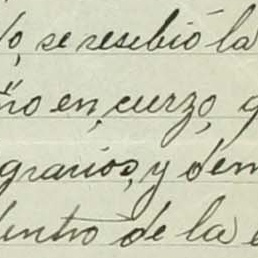 o, se resebió la
ño en, curzo, q
grarios, y dem
dentro de la e